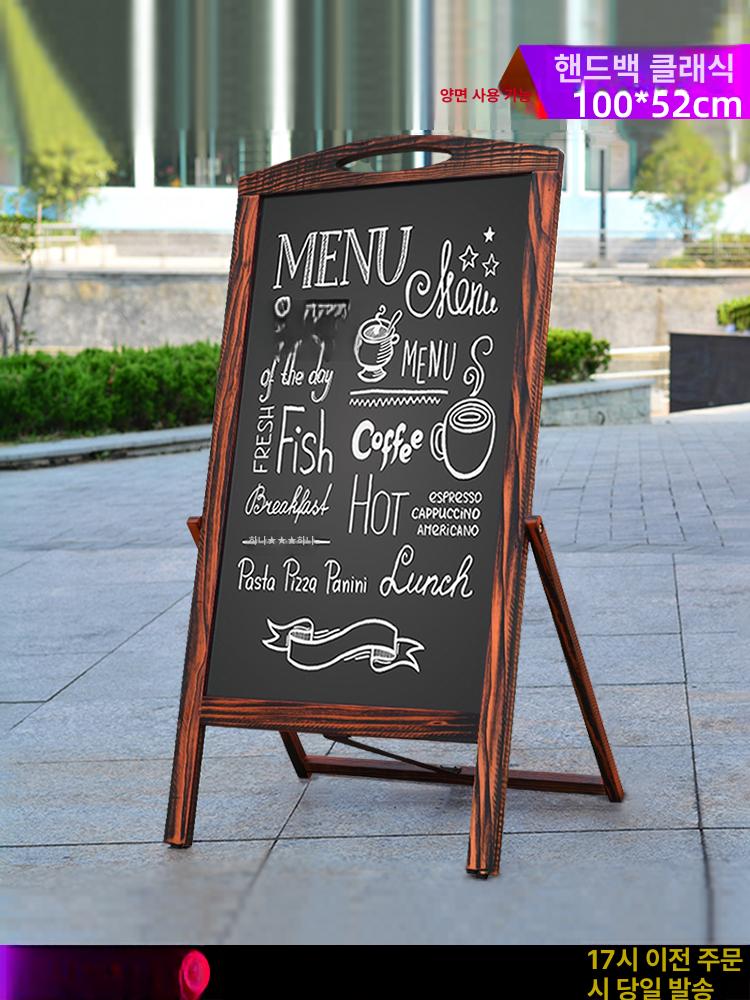 핸드백 클래식
양면 사용 가능
100*52cm
MENU
Menu
of the day
MENU
FRESH
Fish
Coffee
Breakfast
HOT
ESPRESSO
CAPPUCCINO
AMERICANO
하나★★★하나
Pasta Pizza Panini
Lunch
17시 이전 주문
시 당일 발송